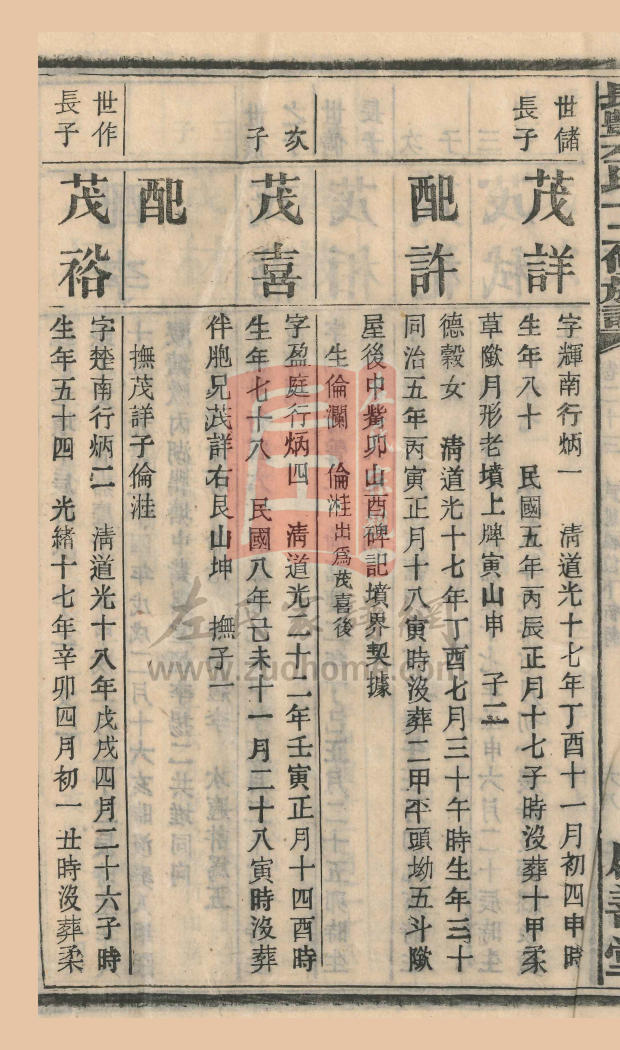 世儲
長子
茂詳
字輝南行炳一　清道光十七年丁酉十一月初四申時
生年八十　民國五年丙辰正月十七子時沒葬十甲柔
草隞月形老墳上牌寅山申　子二
配許
德穀女　清道光十七年丁酉七月三十午時生年三十
同治五年丙寅正月十八寅時沒葬二甲平頭坳五斗隞
屋後中觜卯山酉碑記墳界契據
生倫瀾　倫溎出爲茂喜後
次
子
茂喜
字盈庭行炳四　清道光二十二年壬寅正月十四酉時
生年七十八　民國八年己未十一月二十八寅時沒葬
伴胞兄茂詳右艮山坤　撫子一
配
撫茂詳子倫溎
世作
長子
茂裕
字楚南行炳二　清道光十八年戊戌四月二十六子時
生年五十四　光緒十七年辛卯四月初一丑時沒葬柔
左氏家譜網
www.zuohome.com